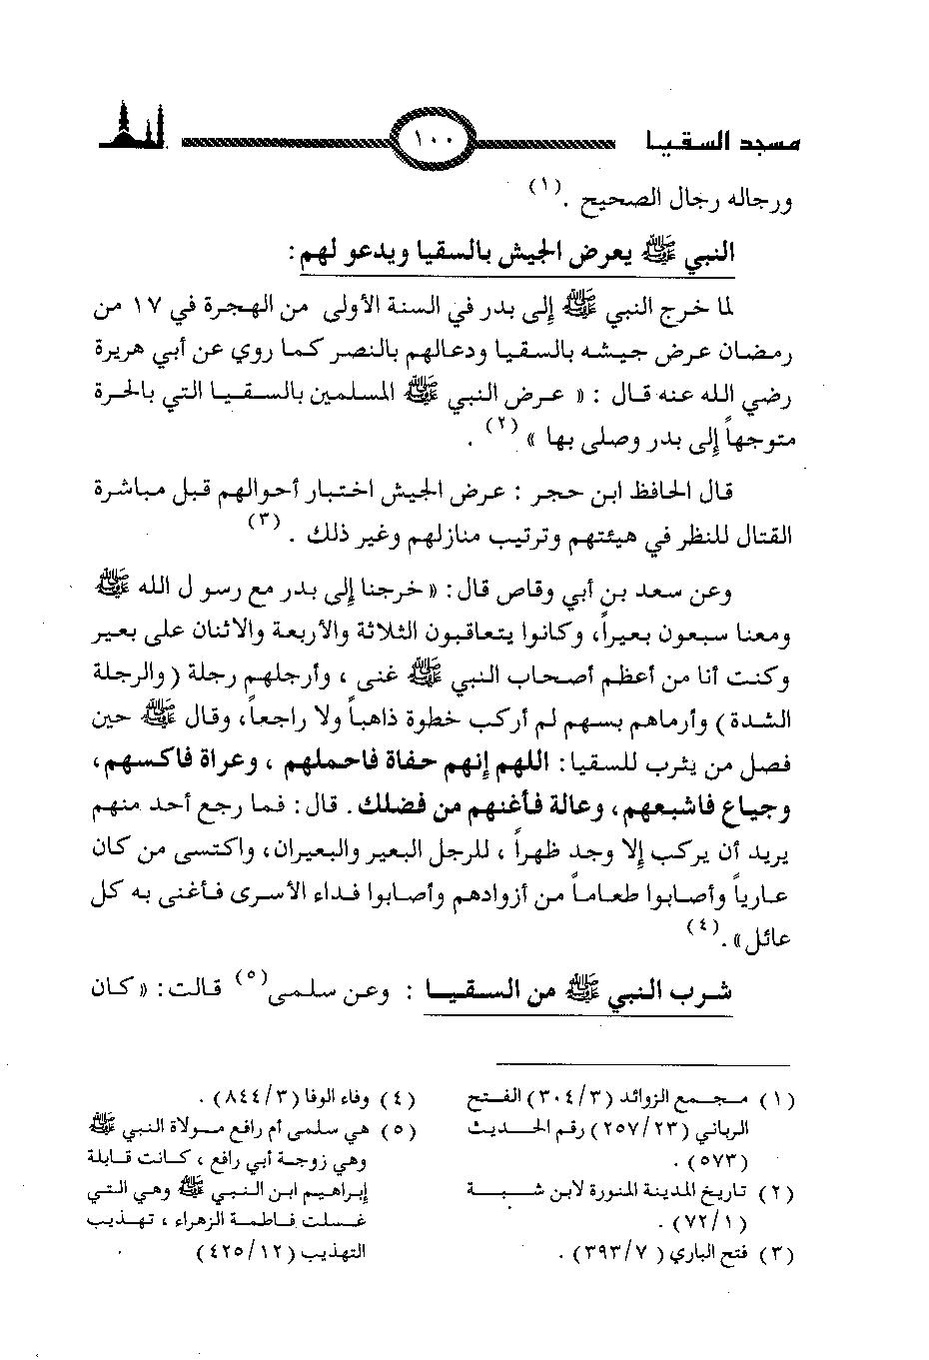 مسجد السقيا
١٠٠
ورجاله رجال الصحيح . (١)
النبي ﷺ يعرض الجيش بالسقيا ويدعو لهم :
لما خرج النبي ﷺ إلى بدر في السنة الأولى من الهجرة في ١٧ من
رمضان عرض جيشه بالسقيا ودعالهم بالنصر كما روي عن أبي هريرة
رضي الله عنه قال : « عرض النبي ﷺ المسلمين بالسقيا التي بالحرة
متوجهاً إلى بدر وصلى بها » (٢) .
قال الحافظ ابن حجر : عرض الجيش اختبار أحوالهم قبل مباشرة
القتال للنظر في هيئتهم وترتيب منازلهم وغير ذلك . (٣)
وعن سعد بن أبي وقاص قال : « خرجنا إلى بدر مع رسول الله ﷺ
ومعنا سبعون بعيراً، وكانوا يتعاقبون الثلاثة والأربعة والاثنان على بعير
وكنت أنا من أعظم أصحاب النبي ﷺ غنى ، وأرجلهم رجلة ( والرجلة
الشدة ) وأرماهم بسهم لم أركب خطوة ذاهباً ولا راجعاً، وقال ﷺ حين
فصل من يثرب للسقيا : اللهم إنهم حفاة فاحملهم ، وعراة فاكسهم ،
وجياع فاشبعهم، وعالة فأغنهم من فضلك . قال : فما رجع أحد منهم
يريد أن يركب إلا وجد ظهراً ، للرجل البعير والبعيران، واكتسى من كان
عارياً وأصابوا طعاماً من أزوادهم وأصابوا فداء الأسرى فأغنى به كل
عائل» . (٤)
شرب النبي ﷺ من السقيا : وعن سلمى (٥) قالت : « كان
(١) مجمع الزوائد (٣٠٤/٣) الفتح
الرباني (٢٥٧/٢٣) رقم الحديث
(٥٧٣) .
(٢) تاريخ المدينة المنورة لابن شبة
(٧٢/١) .
(٣) فتح الباري ( ٣٩٣/٧) .
(٤) وفاء الوفا (٨٤٤/٣) .
(٥) هي سلمى أم رافع مولاة النبي ﷺ
وهي زوجة أبي رافع ، كانت قابلة
إبراهيم ابن النبي ﷺ وهي التي
غسلت فاطمة الزهراء ، تهذيب
التهذيب (٤٢٥/١٢)